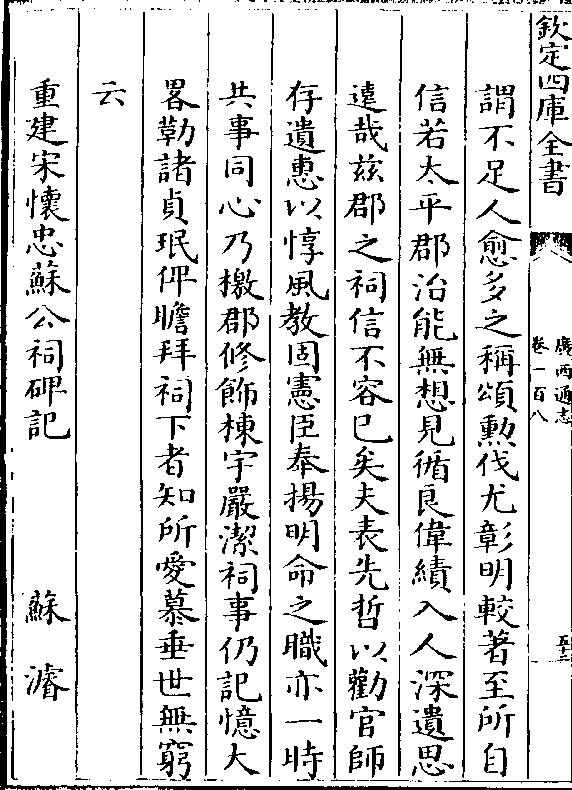 欽定四庫全書
廣西通志
卷一百八
五十二
謂不足人愈多之稱頌勲伐尤彰明較著至所自
信若太平郡治能無想見循良偉績入人深遺思
逺哉兹郡之祠信不容已矣夫表先哲以勸官師
存遺惠以惇風教固憲臣奉揚明命之職亦一時
共事同心乃檄郡修飾棟宇嚴潔祠事仍記憶大
畧勒諸貞珉俾瞻拜祠下者知所愛慕垂世無窮
云
重建宋懷忠蘇公祠碑記 蘇濬